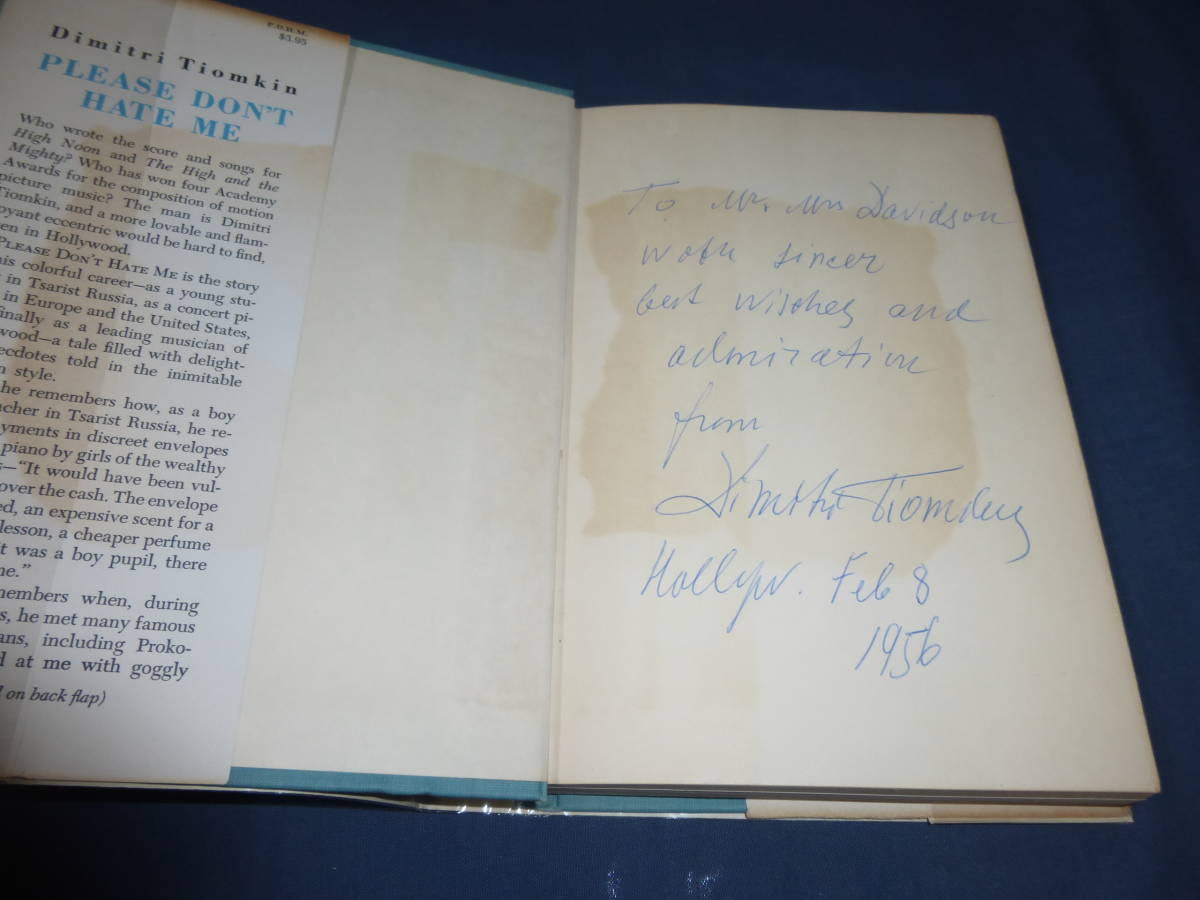 P.D.H.M.
$3.95
Dimitri Tiomkin
PLEASE DON'T
HATE ME
Who wrote the score and songs for
High Noon and The High and the
Mighty? Who has won four Academy
Awards for the composition of motion
picture music? The man is Dimitri
Tiomkin, and a more lovable and flam-
oyant eccentric would be hard to find,
en in Hollywood.
PLEASE DON'T HATE ME is the story
his colorful career—as a young stu-
in Tsarist Russia, as a concert pi-
in Europe and the United States,
finally as a leading musician of
wood—a tale filled with delight-
ecdotes told in the inimitable
n style.
he remembers how, as a boy
acher in Tsarist Russia, he re-
yments in discreet envelopes
piano by girls of the wealthy
s—"It would have been vul-
over the cash. The envelope
ed, an expensive scent for a
lesson, a cheaper perfume
it was a boy pupil, there
ne."
members when, during
s, he met many famous
ans, including Proko-
d at me with goggly
on back flap)
To Mr. Mrs Davidson
with sincer
best wisches and
admiration
from
Dimitri Tiomkin
Hollyw. Feb 8
1956